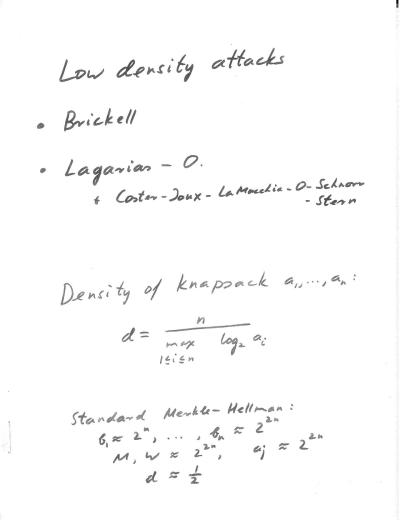 Low density attacks
• Brickell
• Lagarias - O.
+ Coster-Joux-LaMacchia-O-Schnorr
- Stern
Density of knapsack a₁,...,aₙ:
d = n
max log₂ aᵢ
1≤i≤n
Standard Merkle-Hellman:
b₁ ≈ 2ⁿ, ..., bₙ ≈ 2²ⁿ
M, W ≈ 2²ⁿ, aⱼ ≈ 2²ⁿ
d ≈ 1/2